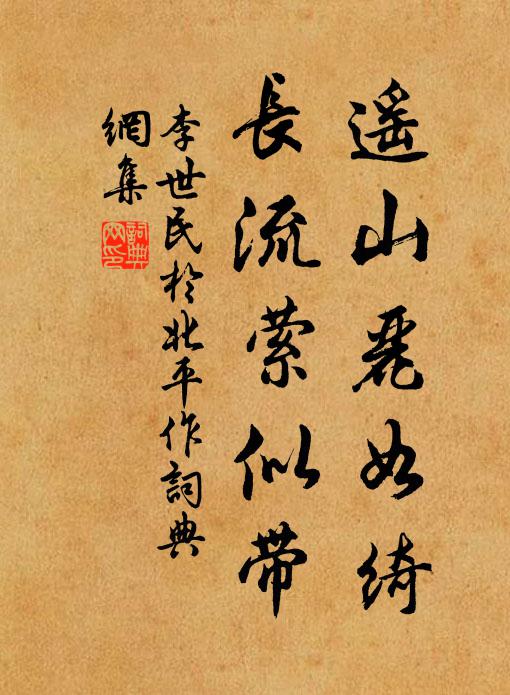 遥山麗如綺
長流縈似帶
李世民於北平作詞典
網集
詞典
網印